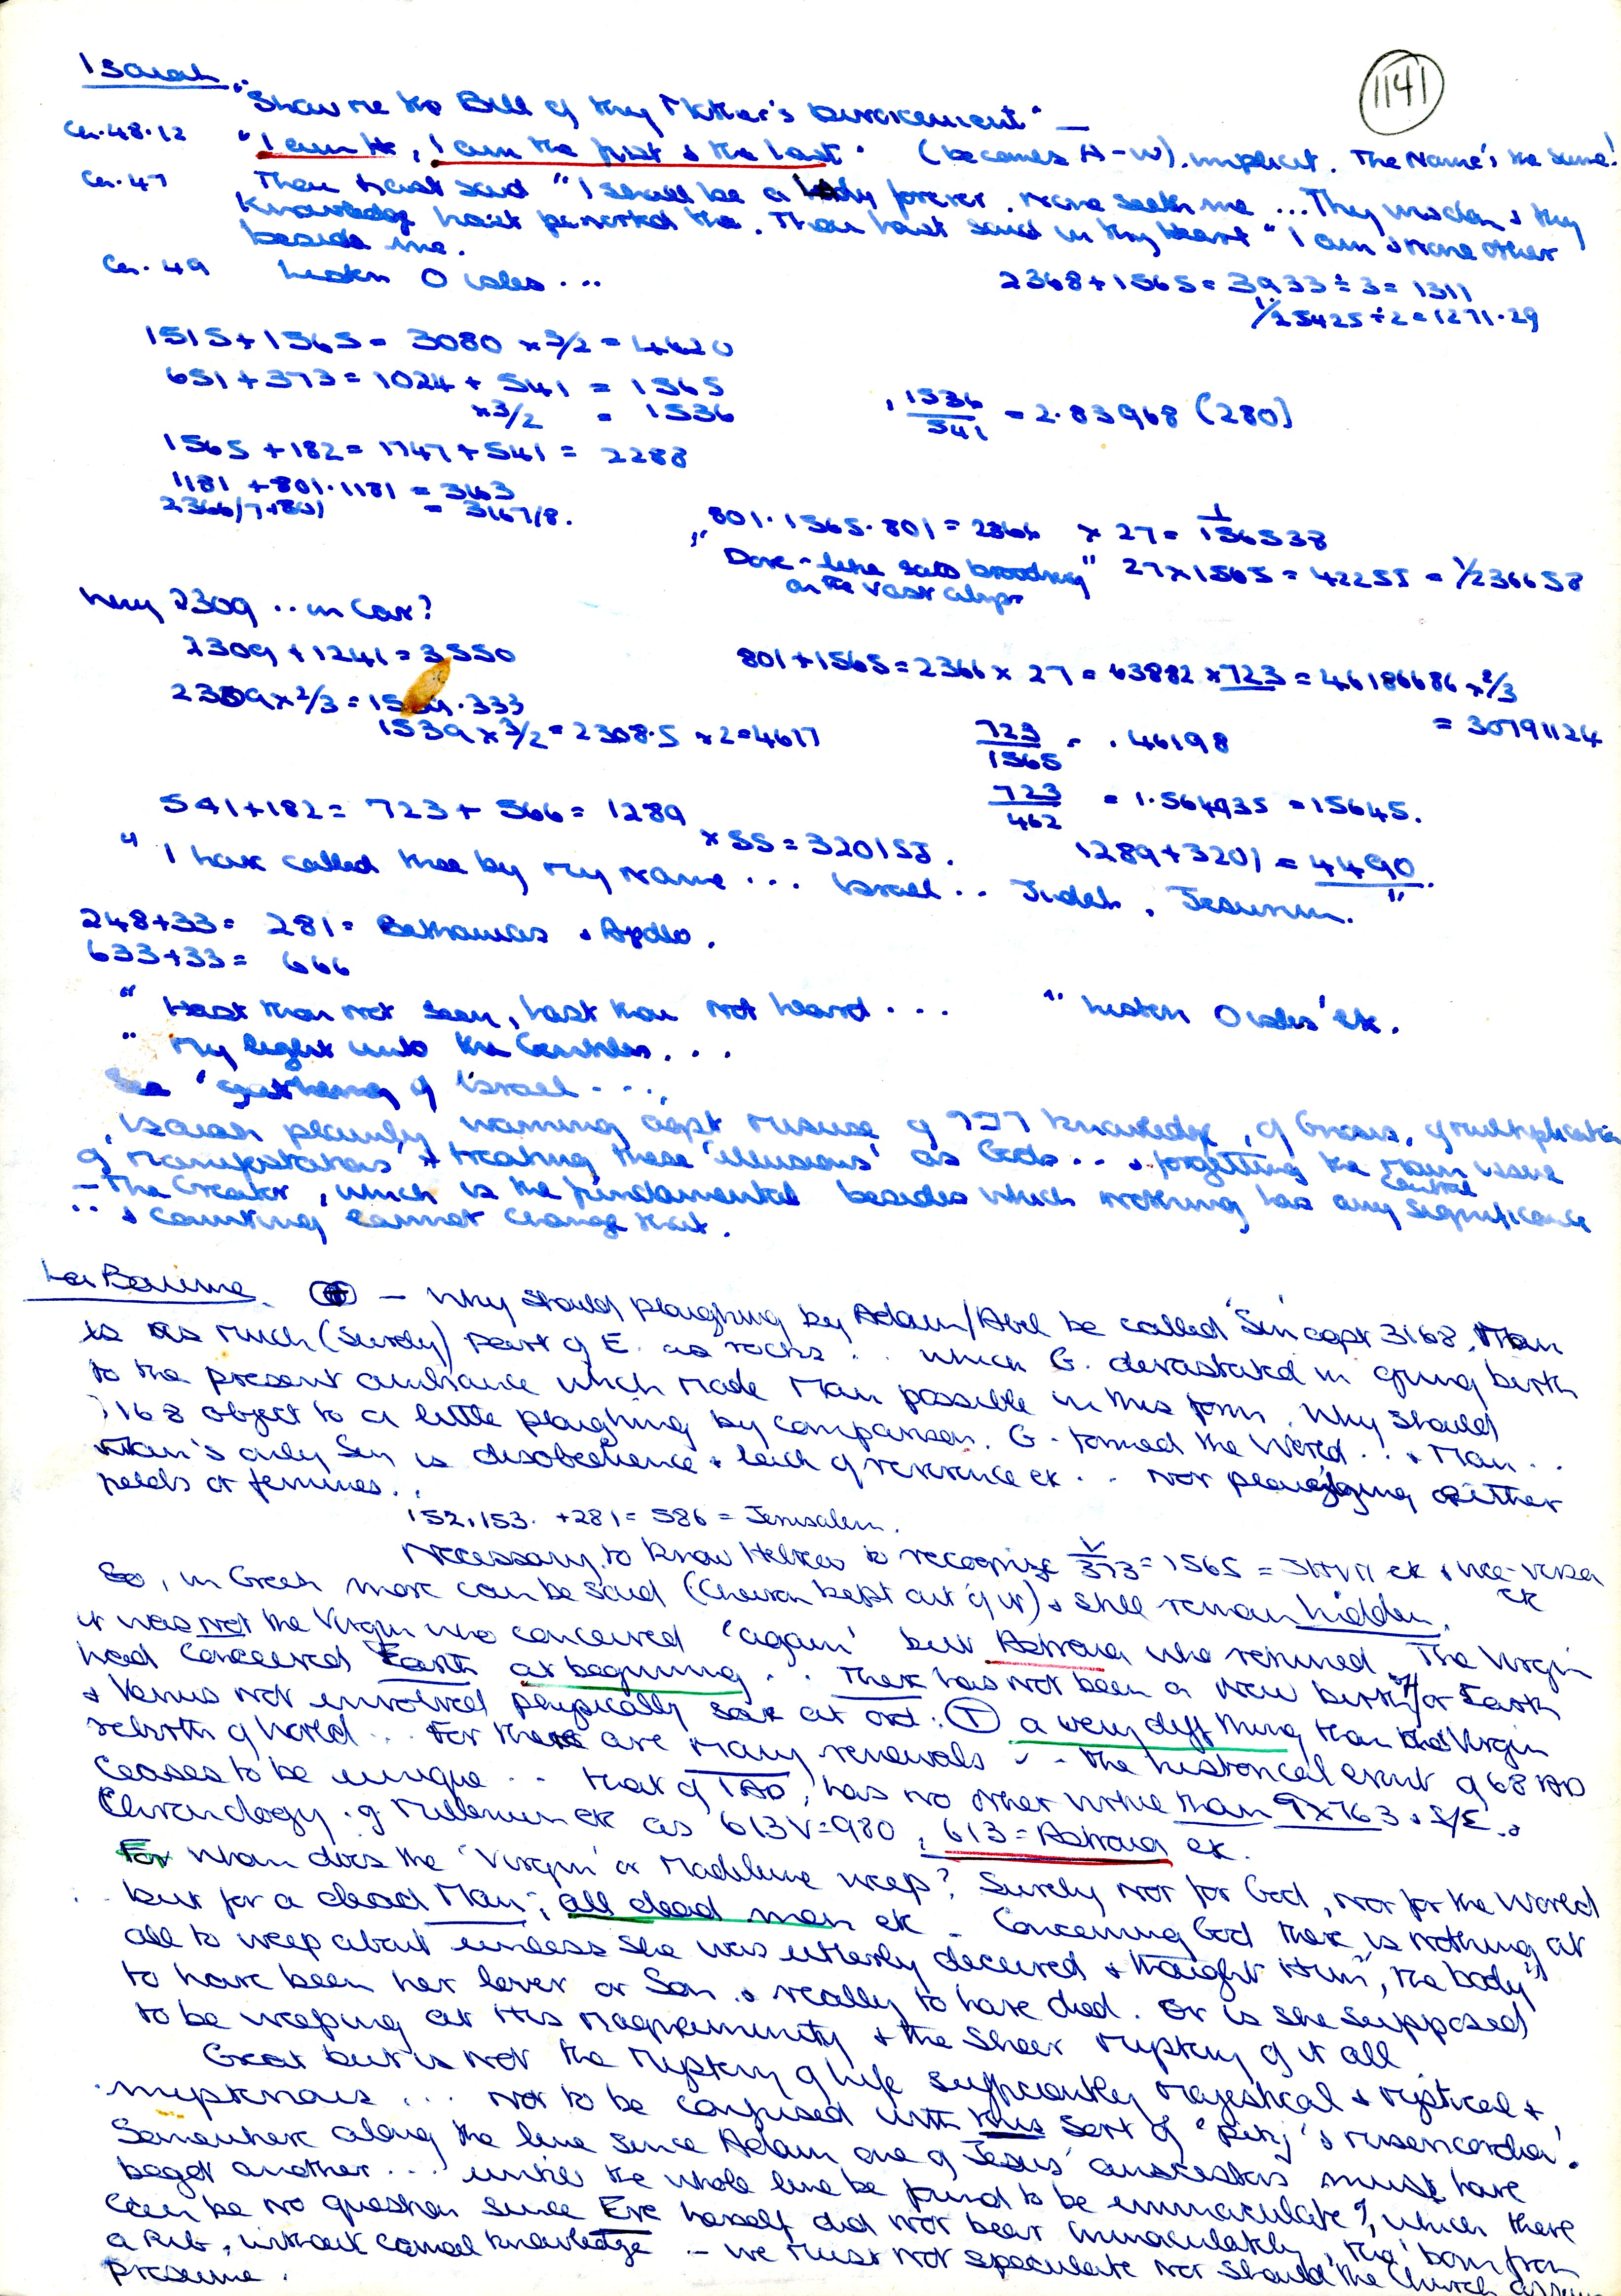 1141
Isaiah
"Show me the Bill of thy Mother's Divorcement" —
Ch. 48.12 "I am He, I am the first & the last." (becomes A-W). implicit. The Name's the same!
Ch. 47 Thou hast said "I shall be a lady forever. None seeth me ... Thy wisdom & thy
Knowledge hast perverted thee. Thou hast said in thy heart "I am & none other
beside me.
Ch. 49 Listen O Isles ...
2368+1565 = 3933 ÷ 3 = 1311
1/25425 ÷ 2 = 1271.29
1515+1565 = 3080 × 3/2 = 4620
651+373 = 1024 + 541 = 1565
× 3/2 = 1536
1536/541 = 2.83968 (280)
1565 + 182 = 1747 + 541 = 2288
1181 + 801.1181 = 3163
= 3167/8.
801.1565.801 = 2866 × 27 = 1/136538
"Dove-like sat'st brooding" 27×1565 = 42255 = 1/236658
on the vast abyss
Why 2309 .. in Car?
2309 + 1241 = 3550
801+1565 = 2366 × 27 = 63882 × 723 = 46186686 × 2/3
= 30791124
2309 × 2/3 = .333
1539 × 3/2 = 2308.5 × 2 = 4617
723/1565 = .46198
723/462 = 1.564935 = 15645.
541+182 = 723 + 566 = 1289
× 55 = 320155. 1289+3201 = 4490.
" I have called thee by My Name ... Israel .. Judah, Jesurun."
248+33 = 281 = & Apollo.
633+33 = 666
" Hast thou not seen, hast thou not heard ... " Listen O Isles' etc.
" My light unto the Gentiles ...
See 'gathering of Israel ...
Isaiah plainly warning agst misuse of knowledge, of Gnosis, of multiplication
of 'manifestations' & treating these 'illusions' as Gods .. & forgetting the Main central issue
— The Creator, which is the fundamental besides which nothing has any significance
.. & 'counting' cannot change that.
La Baume. — Why should ploughing by Adam/Abel be called 'Sin' agst 3168. Man
is as much (surely) part of E. as rocks .. which G. devastated in giving birth
to the present ambiance which made Man possible in this form. Why should
3168 object to a little ploughing by comparison. G. formed the World .. & Man ..
Man's only Sin is disobedience & lack of reverence etc .. Not ploughing either
fields or femmes..
152.153. +281 = 586 = Jerusalem.
Necessary to know Hebrew to recognize 373 = 1565 = etc & vice-versa
So, in Greek more can be said (Church kept out of it) & still remain hidden. etc
it was not the Virgin who conceived 'again' but Astraea who returned. The Virgin
had conceived Earth at beginning .. There has not been a new birth of/for Earth
& Venus not involved physically save at ord: a very diff thing than the Virgin
rebirth of World .. For there are many renewals .. the historical event of 68 AD
ceases to be unique .. that of 1 AD, has no other virtue than 9×763 & S/E. &
Chronology of Millenium etc as 613V = 980, 613 = Astraea etc.
For whom does the 'Virgin' or Madeleine weep? Surely not for God, nor for the World
but for a dead Man; all dead men etc — Concerning God there is nothing at
all to weep about unless she was utterly deceived & thought Him, "the body"
to have been her lover or Son & really to have died. Or is she supposed
to be weeping at His Magnanimity & the sheer mystery of it all
Great but is not the mystery of life sufficiently majestical & mystical &
mysterious ... not to be confused with this sort of 'pity' & misericordia'.
Somewhere along the line since Adam one of Jesus' ancestors must have
begot another ... unless the whole line be found to be immaculate, which there
can be no question since Eve herself did not bear immaculately, tho' born from
a Rib, without carnal knowledge — we must not speculate nor should the Church
presume.